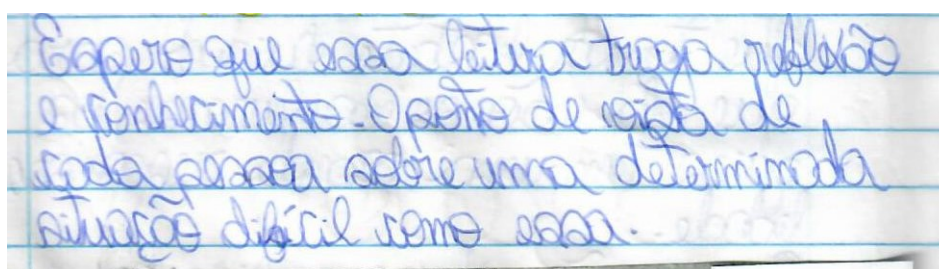 Espero que essa leitura traga reflexão
e conhecimento. O ponto de vista de
cada pessoa sobre uma determinada
situação difícil como essa.